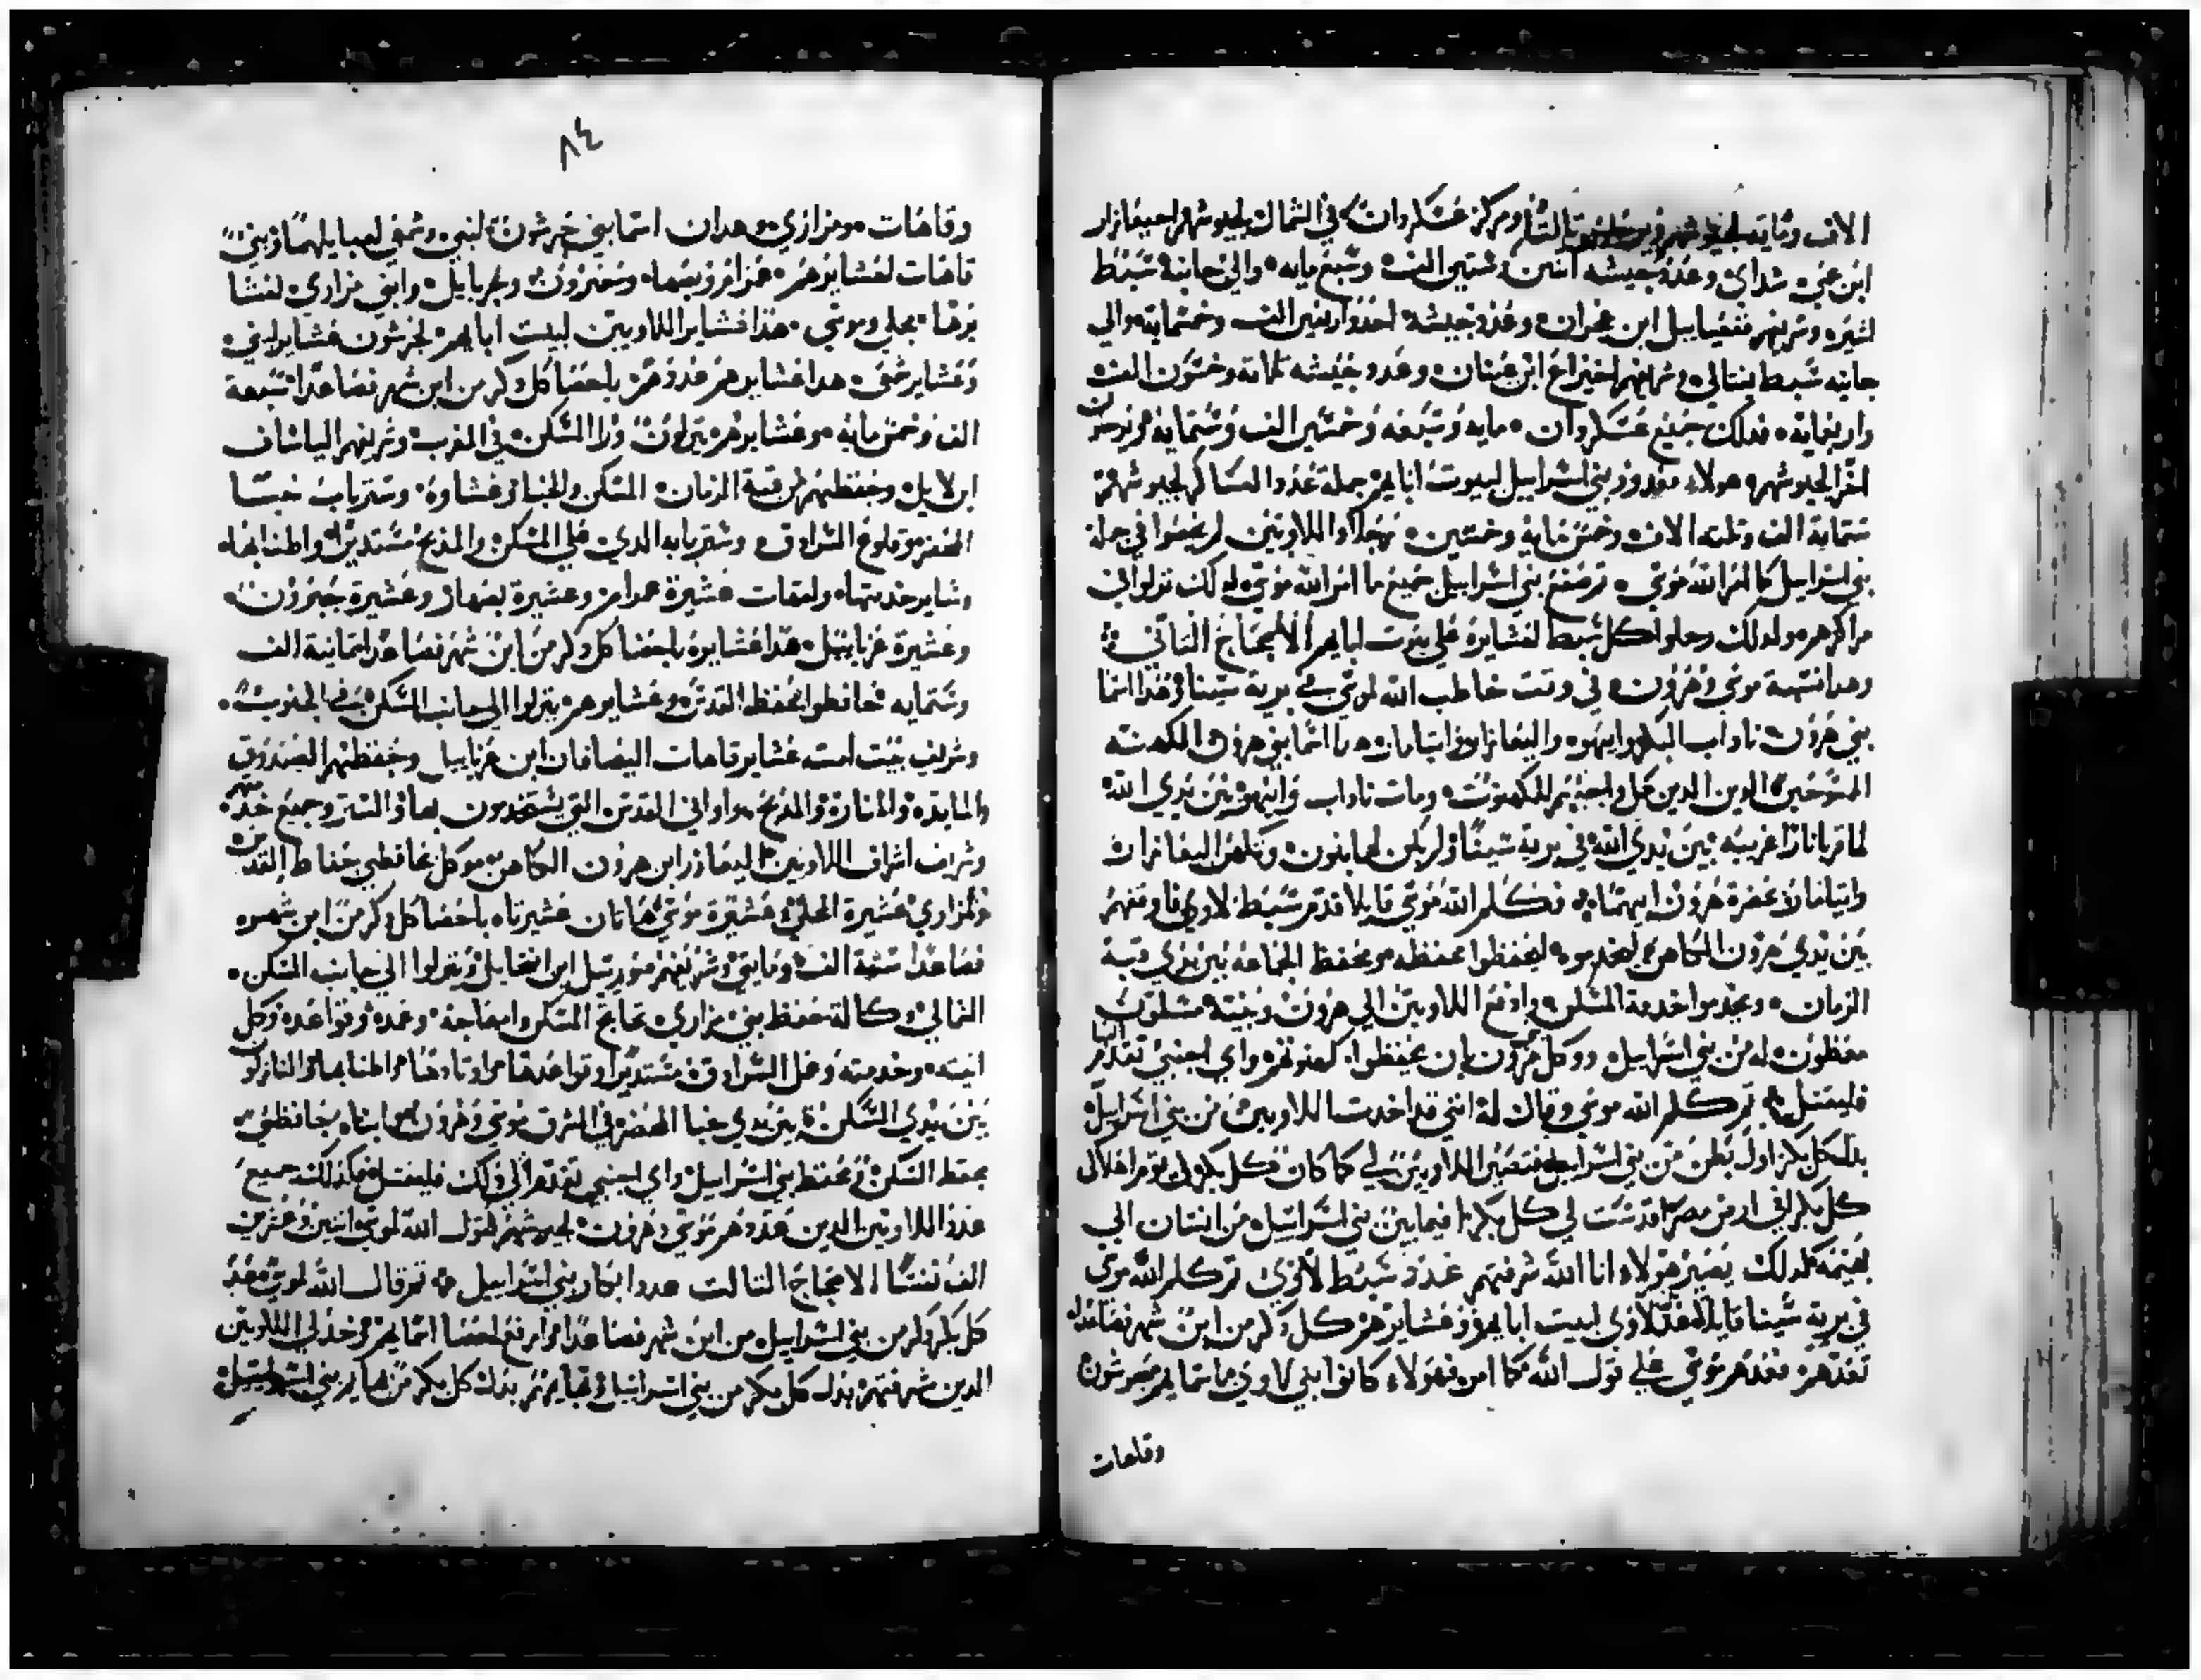 الاف ومايه لجيوشهم ومركز عسكر دان في الشمال لجيوشهم احيعازار
ابن عمي شداي وعدد جيشه اتنين وستين الف وسبع مايه والي جانبه سبط
اشير وشريفهم فغيايل ابن عخران وعدد جيشه احد واربعين الف وخمسمايه والي
جانبه سبط نفتالي وشريفهم اخيراع ابن عينان وعدد جيشه تلاتة وخمسون الف
واربعمايه فدلك جميع عسكر دان مايه وسبعه وخمسين الف وستمايه
لجيوشهم هولاء معدودو بني اسراييل لبيوت ابايهم جملة عدد العساكر لجيوشهم
ستماية الف وتلتة الاف وخمس مايه وخمسين واللاويين لم يحصوا في جملة
بني اسراييل كما امر الله موسي فصنع بني اسراييل جميع ما امر الله موسي لدلك نزلوا في
مراكزهم ولدلك رحلوا كل سبط لعشايره علي بيوت ابايهم الاصحاح التالت
وهدا نسبة موسي وهرون في وقت خاطب الله لموسي في برية سينا وهدا اسما
بني هرون ناداب البكر وابيهو واليعازار وايتامار هدا اسما بني هرون الكهنه
الممسوحين الدين كمل واجبهم للكهنوت ومات ناداب وابيهو بين يدي الله
لما قربا نارا غريبه بين يدي الله في برية سينا ولم يكن لهما بنون وتكهن اليعازار
وايتامار في حضرة هرون ابيهما فكلم الله موسي قايلا قدم سبط لاوي واوقفهم
بين يدي هرون الكاهن ليخدموه ليحفظوا محفظه ومحفظ الجماعه بين يدي قبة
الزمان ويخدموا خدمة المسكن وادفع اللاويين الي هرون وبنيه مسلمون
معطون له من بني اسراييل ووكل هرون وبنيه بان يحفظوا كهنوتهم واي اجنبي تقدم اليها
فليقتل ثم كلم الله موسي وقال له انني قد اخدت اللاويين من بني اسراييل
بدل كل بكر اول بطن من بني اسراييل فتصير اللاويين لي كما كان كل بكر لي يوم اهلاكي
كل بكر في ارض مصر قدست لي كل بكر فيما بين بني اسراييل من انسان الي
بهيمه كدلك يصير هولاء انا الله شرفتهم عدد سبط لاوي ثم كلم الله موسي
في برية سينا قايلا عد بني لاوي لبيت ابايهم وعشايرهم كل دكر من ابن شهر فصاعدا
تعدهم فعدهم موسي علي قول الله كما امر فهولاء كانوا بني لاوي باسمايهم جرشون
وقاهات
٨٤
وقاهات ومراري وهدان اسما بني جرشون لبني وشمعي لقبايلهما وبني
قاهات لعشايرهم عمرام ويصهار وحبرون وعزياييل وابني مراري لعشا
يرهما محلي وموشي هدا عشاير اللاويين لبيت ابايهم لجرشون عشاير لبني
وعشاير شمعي هدا عشايرهم عددهم باحصا كل دكر من ابن شهر فصاعدا سبعة
الف وخمس مايه وعشايرهم ينزلون ورا المسكن في المغرب وشريفهم الياساف
ابن لايل وحفظهم من قبة الزمان المسكن والخبا وغشاوه وستر باب خبا
المحضر وقلوع السرادق وستر بابه الدي علي المسكن والمدبح مستديرا واطنابها
وساير خدمتها ولقهات عشيرة عمرام وعشيرة يصهار وعشيرة حبرون
وعشيرة عزياييل هدا عشايره باحصا كل دكر من ابن شهر فصاعدا تمانية الف
وستمايه حافظوا محفظ القدس وعشايرهم ينزلوا الي جانب المسكن في الجنوب
وشريف بيت امت عشاير قاهات اليصافان ابن عزياييل وحفظهم الصندوق
والمايده والمناره والمدبح واواني القدس التي يستخدمون بها والستر وجميع خدمتهم
وشريف اشراف اللاويين اليعازر ابن هرون الكاهن موكل بحافظي حفاظ القدس
ولمراري عشيرة المحلي وعشيرة موشي هاتان عشيرتاه باحصا كل دكر من ابن شهر
فصاعدا ستة الف ومايتي وشريفهم صوريل ابن ابيحايل وينزلوا الي جانب المسكن
الشمالي وكالة حفظ بني مراري تحاتج المسكن وامعاجه وعمده وقواعده وكل
انيته وخدمته وعمل السرادق مستديرا وقواعدها واوتادها واطنابها والنازلون
بين يدي المسكن بين يدي خبا المحضر في الشرق موسي وهرون وابناه يحافظون
بحفظ المسكن ومحفظ بني اسراييل واي اجنبي تقدم الي دلك فليقتل فدلك جميع
عدد اللاويين الدين عدهم موسي وهرون لجيوشهم لقول الله لموسي اتنين وعشرين
الف نفسا الاصحاح التالت عدد ابكار بني اسراييل ثم قال الله لموسي عد
كل بكر دكر من بني اسراييل من ابن شهر فصاعدا وارفع احصا اسمايهم وخد لي اللاويين
الدين شرفتهم بدل كل بكر من بني اسراييل وبهايمهم بدل كل بكر من بهايم بني اسراييل